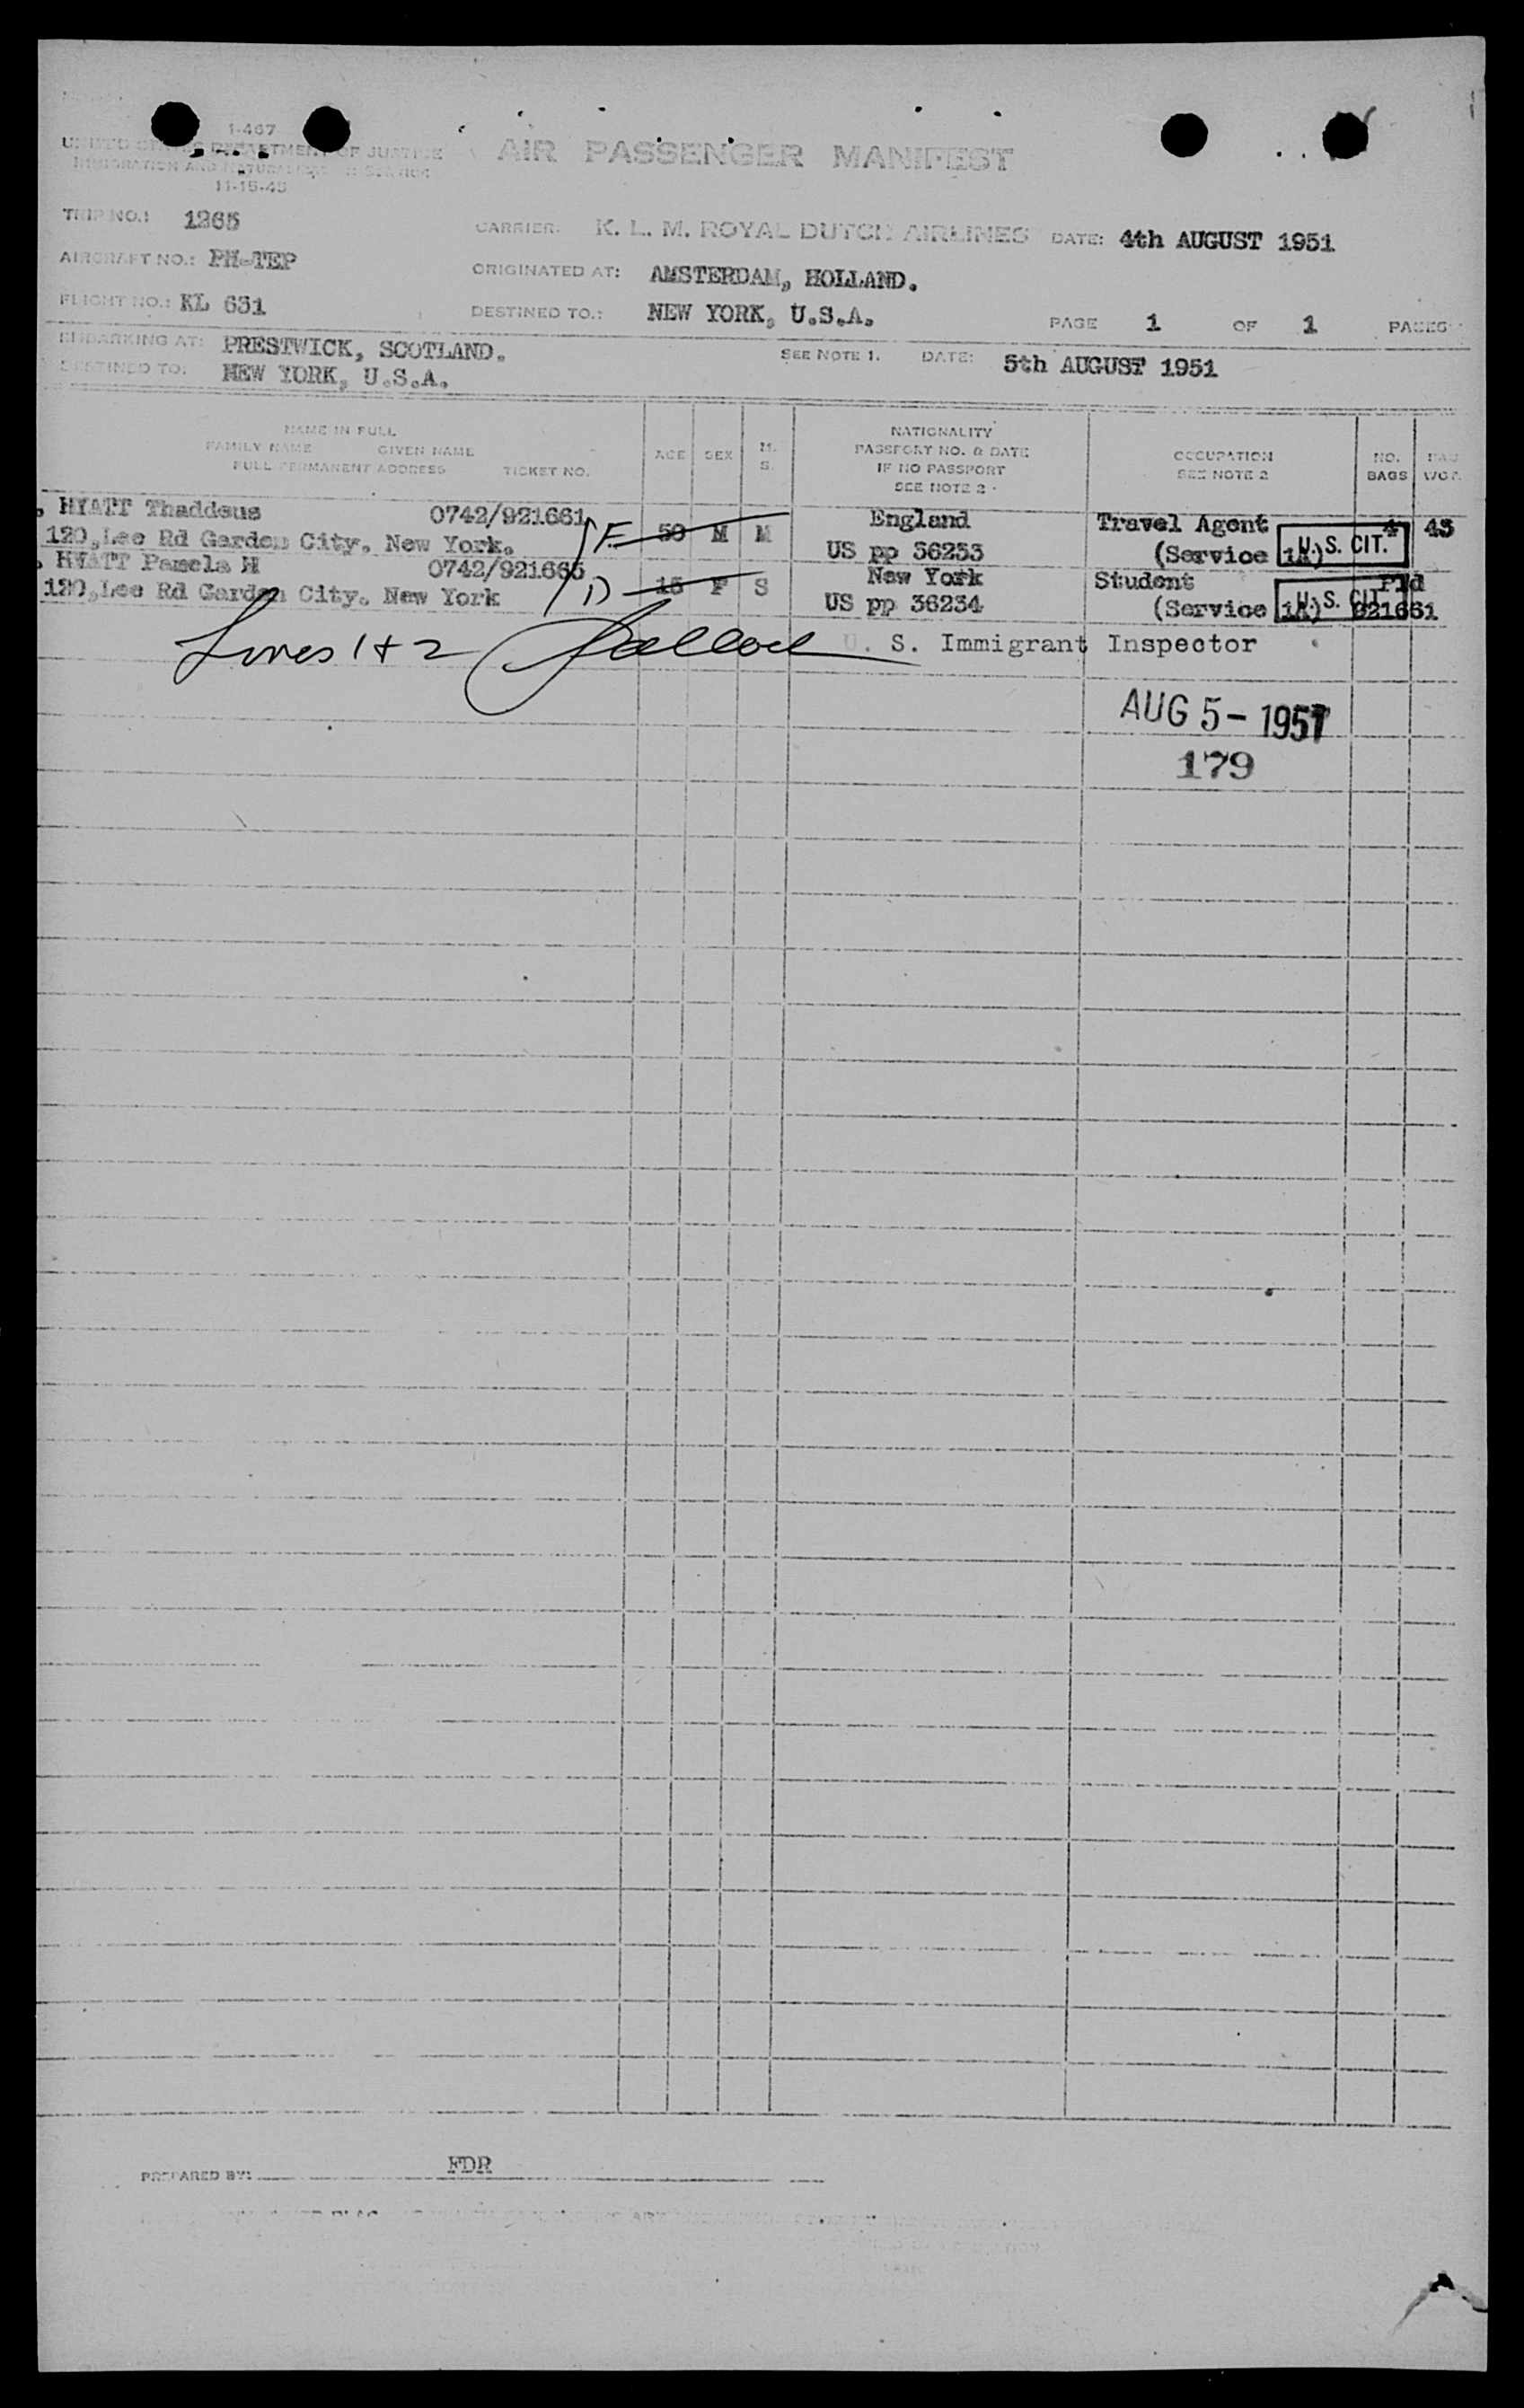 1-467
UNITED STATES DEPARTMENT OF JUSTICE
IMMIGRATION AND NATURALIZATION SERVICE
11-15-45
AIR PASSENGER MANIFEST
TRIP NO.: 1265
CARRIER: K. L. M. ROYAL DUTCH AIRLINES DATE: 4th AUGUST 1951
AIRCRAFT NO.: PH-TEP
ORIGINATED AT: AMSTERDAM, HOLLAND.
FLIGHT NO.: KL 631
DESTINED TO.: NEW YORK, U.S.A.
PAGE 1 OF 1 PAGES
EMBARKING AT: PRESTWICK, SCOTLAND.
SEE NOTE 1. DATE: 5th AUGUST 1951
DESTINED TO: NEW YORK, U.S.A.
NAME IN FULL
FAMILY NAME GIVEN NAME
FULL PERMANENT ADDRESS TICKET NO.
AGE SEX M. S.
NATIONALITY
PASSPORT NO. & DATE
IF NO PASSPORT
SEE NOTE 2
OCCUPATION
SEE NOTE 2
NO. BAGS
HYATT Thaddeus 0742/921661 F 50 M M England Travel Agent 4 45
120,Lee Rd Garden City. New York. US pp 36233 (Service 1A) U.S. CIT.
HYATT Pamela H 0742/921665 D 15 F S New York Student Pld
120,Lee Rd Garden City. New York US pp 36234 (Service 1A) U.S. CIT. 921661
Lines 1 + 2 U. S. Immigrant Inspector
AUG 5 - 1951
179
PREPARED BY: FDR